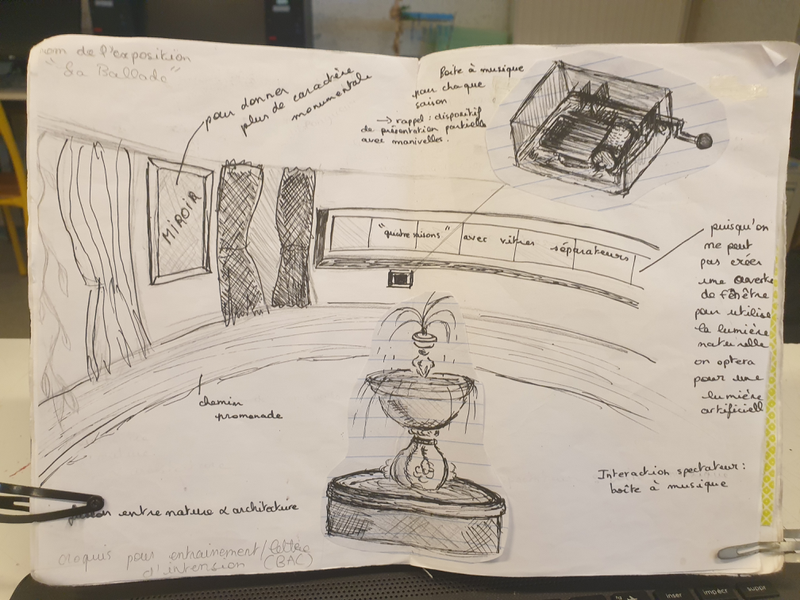 nom de l'exposition
"La Ballade"
pour donner
plus de caractère
monumentale
MIROIR
Boîte à musique
pour chaque
saison
→ rappel : dispositif
de présentation partielle
avec manivelles.
"quatre saisons" avec vitres séparateurs
puisqu'on
ne peut
pas créer
une ouverte
de fenêtre
pour utilise
la lumière
naturelle
on optera
pour une
lumière
artificiell
chemin
promenade
Interaction spectateur :
boîte à musique
entre nature & architecture
croquis pour entrainement/lettre
d'intension (BAC)
inser
impécr
suppr